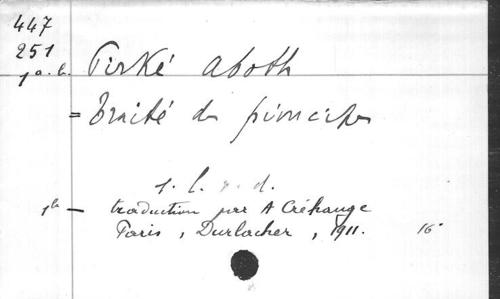 447
251
1a.b. Pirké aboth
= Traité de principes
s. l. n. d.
1b — traduction par A Créhange
Paris, Durlacher, 1911. 16°